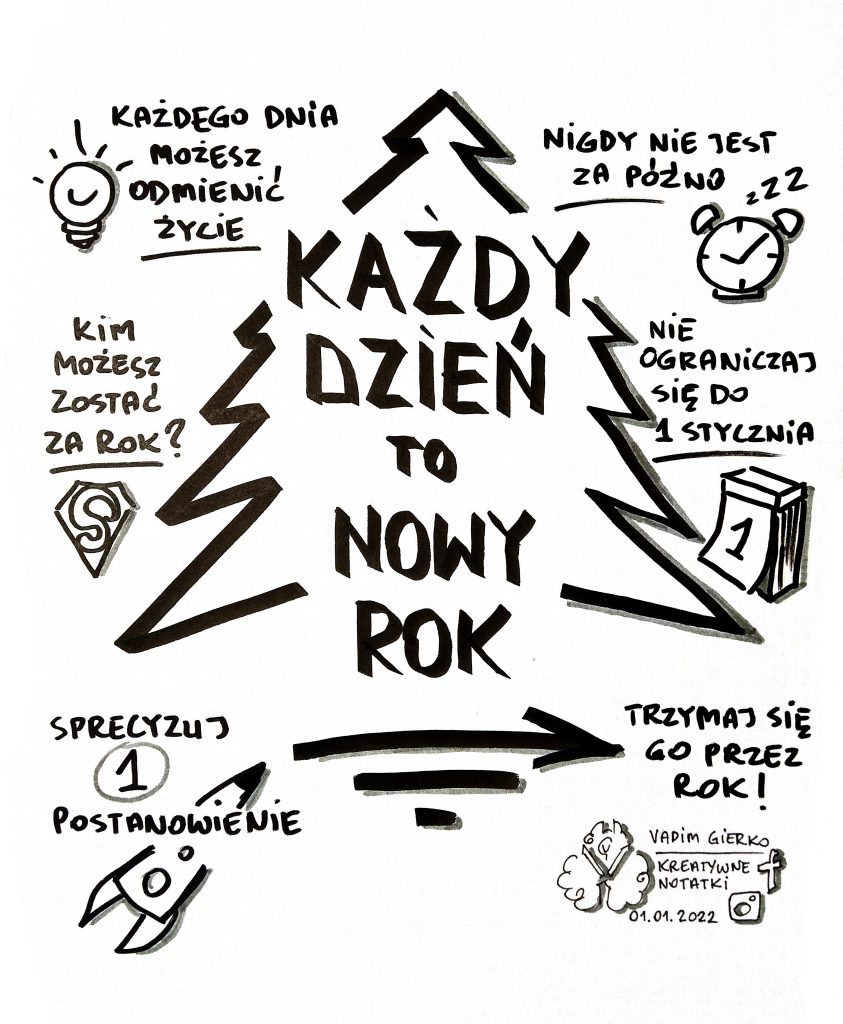 KAŻDEGO DNIA
MOŻESZ
ODMIENIĆ
ŻYCIE
NIGDY NIE JEST
ZA PÓŹNO
zZZ
KAŻDY
DZIEŃ
TO
NOWY
ROK
KIM
MOŻESZ
ZOSTAĆ
ZA ROK?
S
NIE
OGRANICZAJ
SIĘ DO
1 STYCZNIA
1
SPRECYZUJ
1
POSTANOWIENIE
TRZYMAJ SIĘ
GO PRZEZ
ROK!
VADIM GIERKO
KREATYWNE
NOTATKI
f
01.01.2022